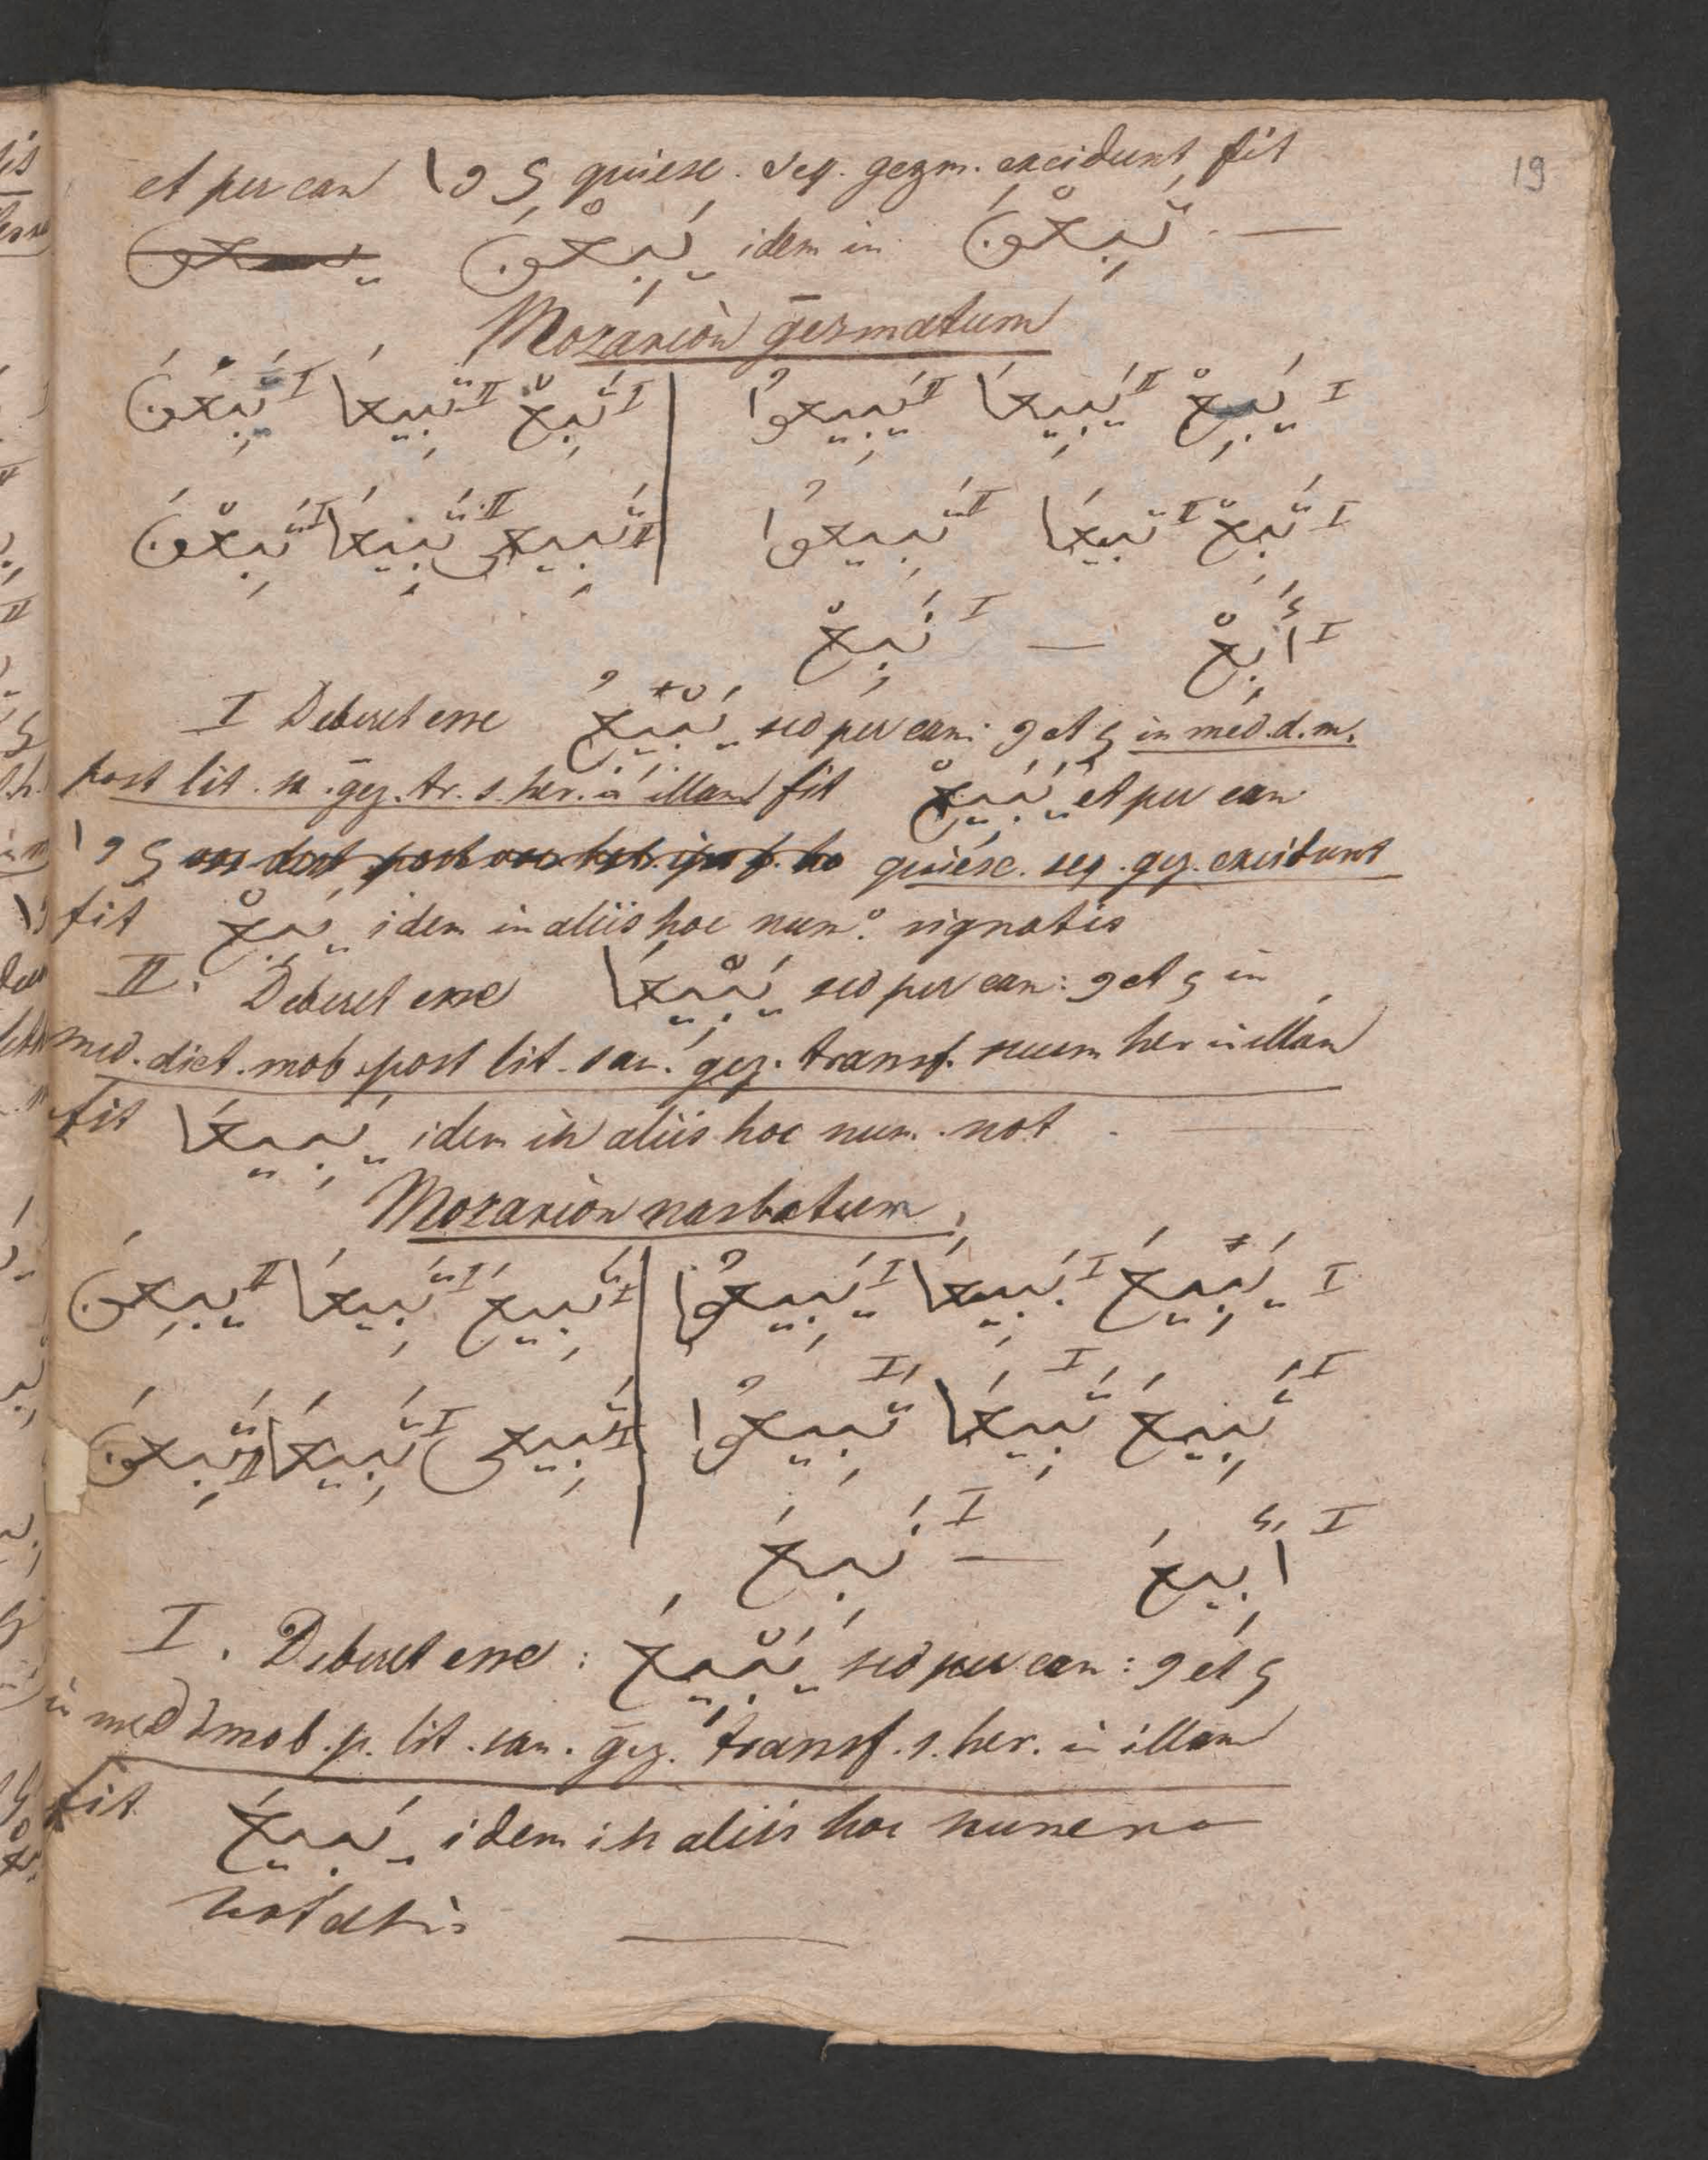 19
et per can ا و ی quiesc. seq. gezm. excidunt, fit
يَبِعْنَ idem in تَبِعْنَ —
Mozariòn gezmatum
I يَبِعْ II يَبِيعَا II يَبِيعُوا | I تَبِعْ II تَبِيعَا I يَبِعْنَ
I تَبِعْ II تَبِيعَا II تَبِيعُوا | II تَبِيعِى II تَبِيعَا I تَبِعْنَ
I أَبِعْ — I نَبِعْ
I Deberet esse يَبْيِعْ sed per can: و et ی in med. d. m.
post lit. s. gez. tr. s. her. in illam fit يَبِيعْ et per can
ا و ی quiesc. seq. gez. excidunt
fit يَبِعْ idem in aliis hoc num.º signatis
II. Deberet esse يَبْيِعَا sed per can: و et ی in
med. dict. mob. post lit. san. gez. transf. suum her in illam
fit يَبِيعَا idem in aliis hoc num. not —
Mozariòn nasbatum
I يَبِيعَ I يَبِيعَا I يَبِيعُوا | I تَبِيعَ I تَبِيعَا II يَبِعْنَ
I تَبِيعَ I تَبِيعَا I تَبِيعُوا | I تَبِيعِى I تَبِيعَا II تَبِعْنَ
I أَبِيعَ — I نَبِيعَ
I. Deberet esse: يَبْيِعَ sed per can: و et ی
in med d mob. p. lit. san. gez. transf. s. her. in illam
fit يَبِيعَ idem in aliis hoc numero
notatis —